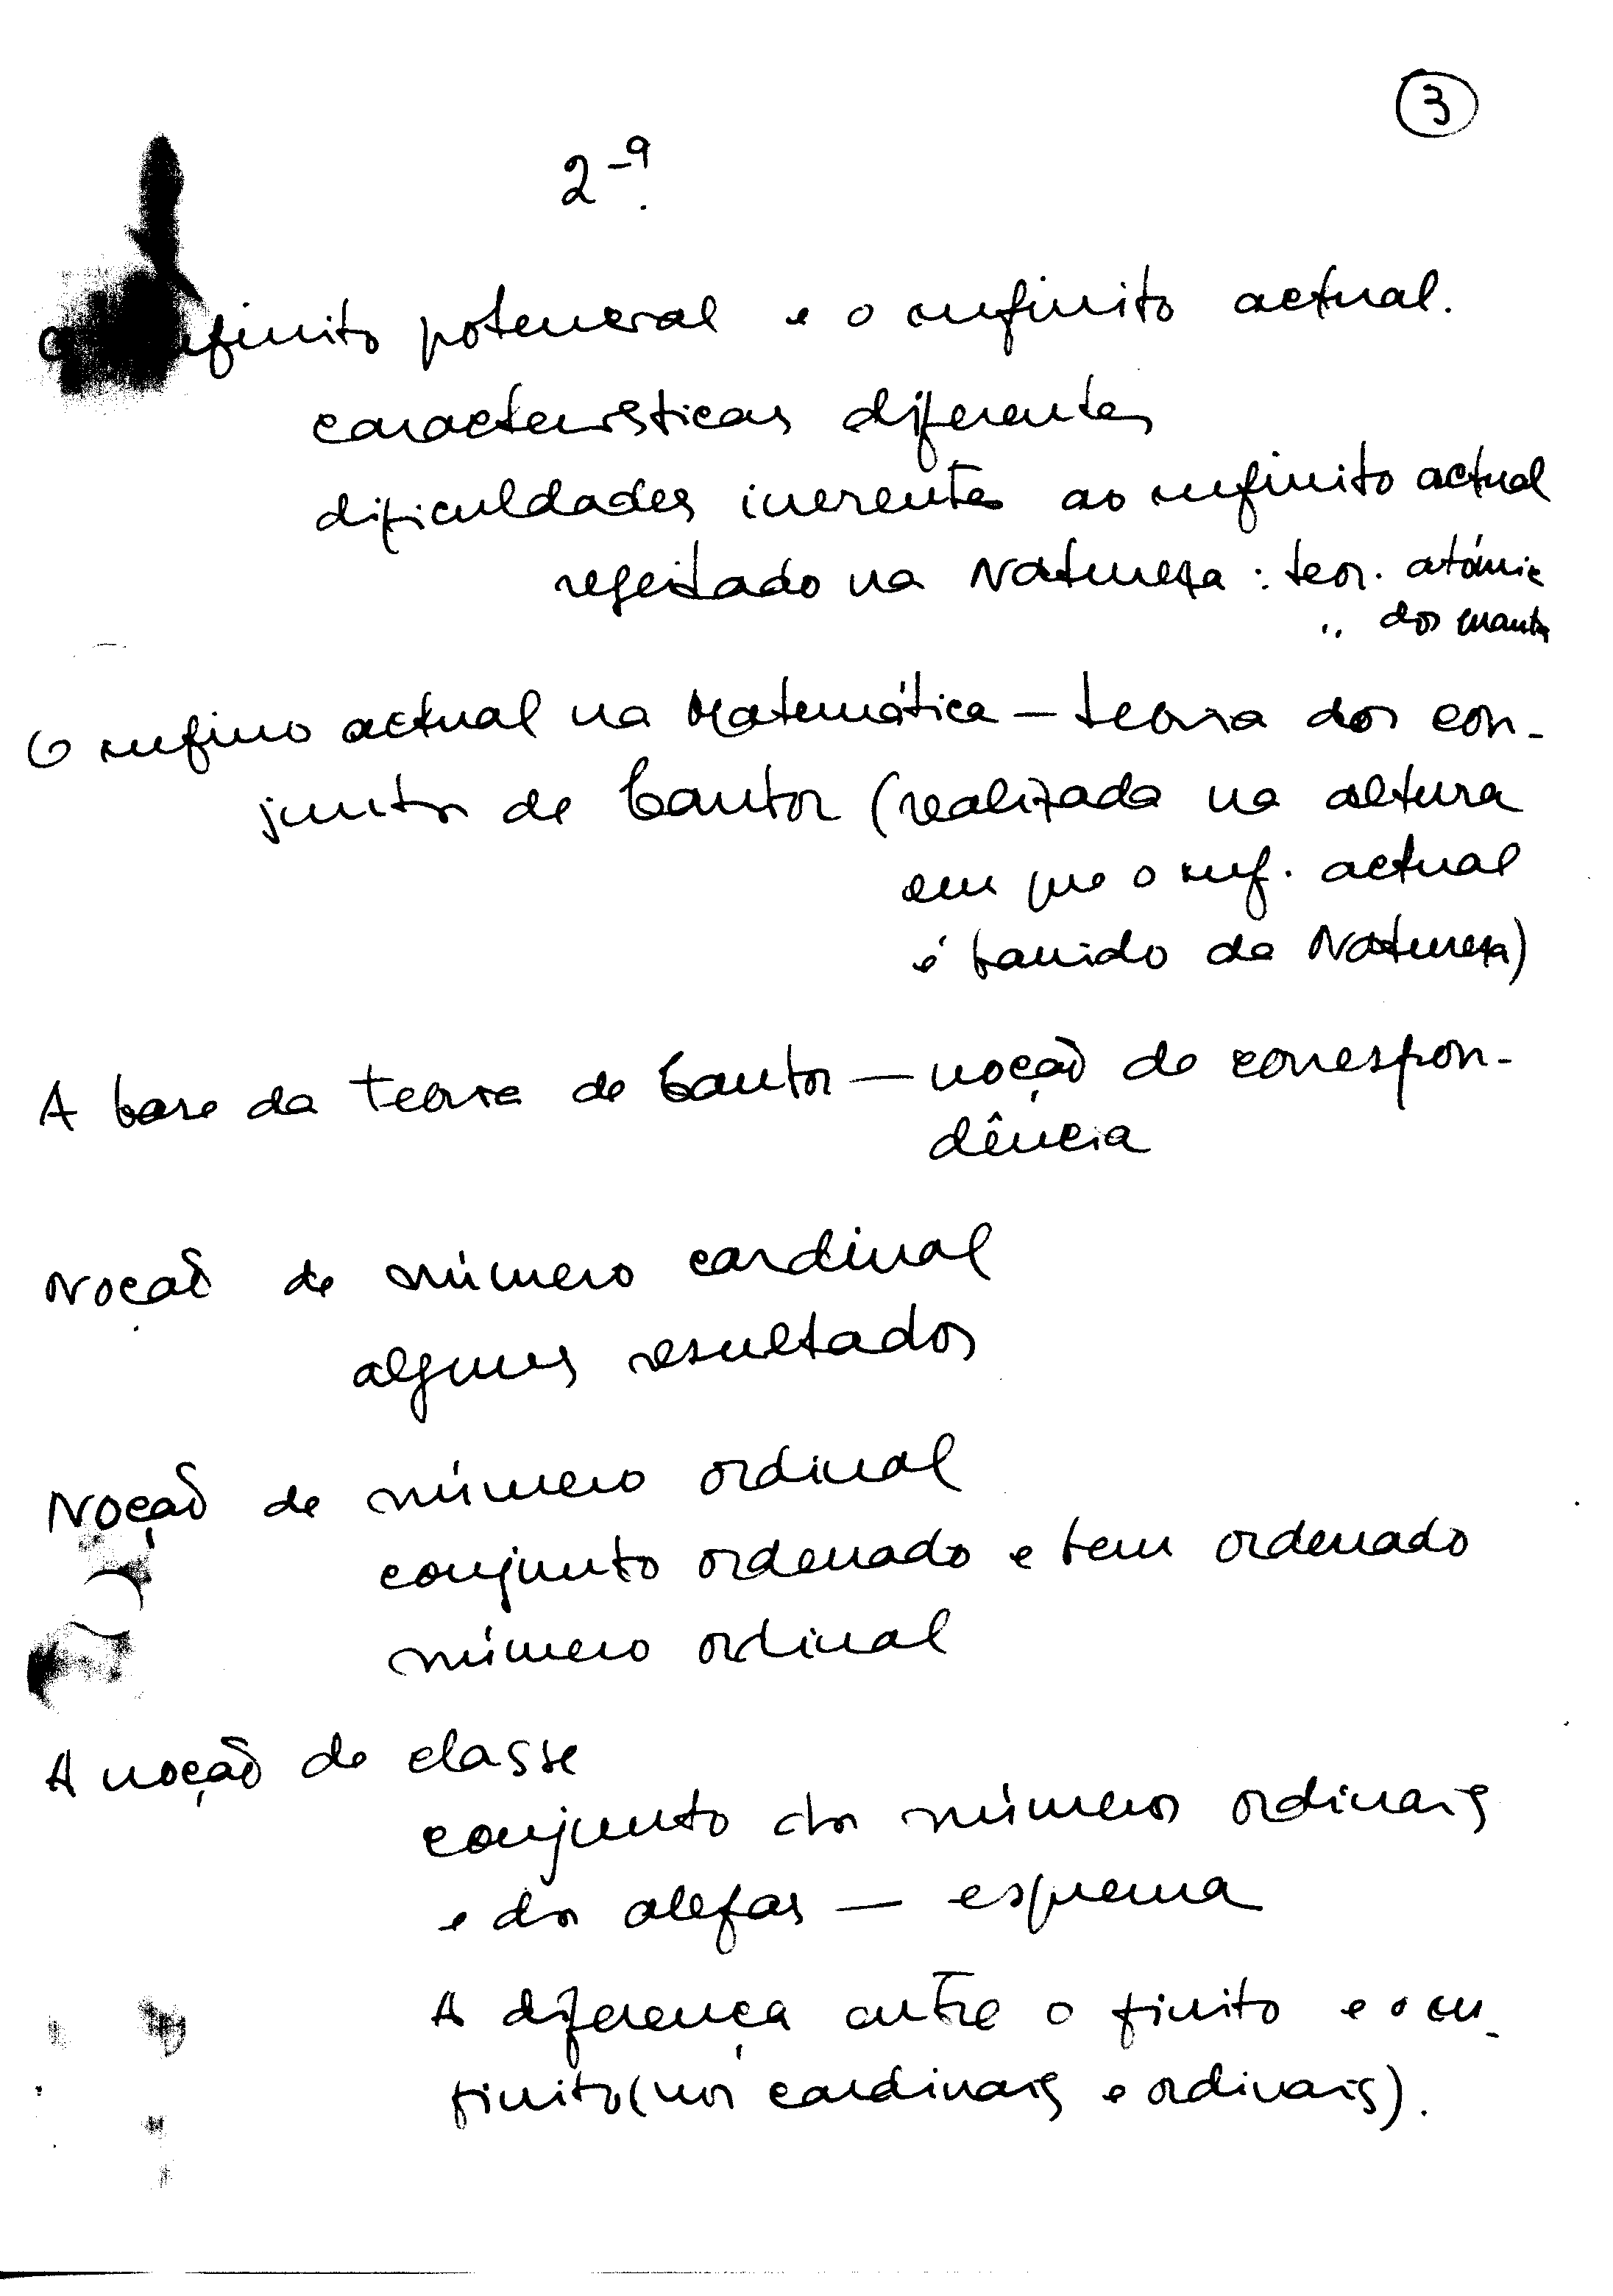 3
2-ª
O infinito potencial e o infinito actual.
características diferentes
dificuldades inerentes ao infinito actual
rejeitado na Natureza : teor. atómic
" dos quanta
O infino actual na Matemática – teoria dos con-
juntos de Cantor (realizada na altura
em que o inf. actual
é banido da Natureza)
A base da teoria de Cantor – noção de correspon-
dência
Noção de número cardinal
alguns resultados
Noção de número ordinal
conjunto ordenado e bem ordenado
número ordinal
A noção de classe
conjunto dos números ordinais
e dos alefas – esquema
A diferença entre o finito e o in-
finito (nos cardinais e ordinais).